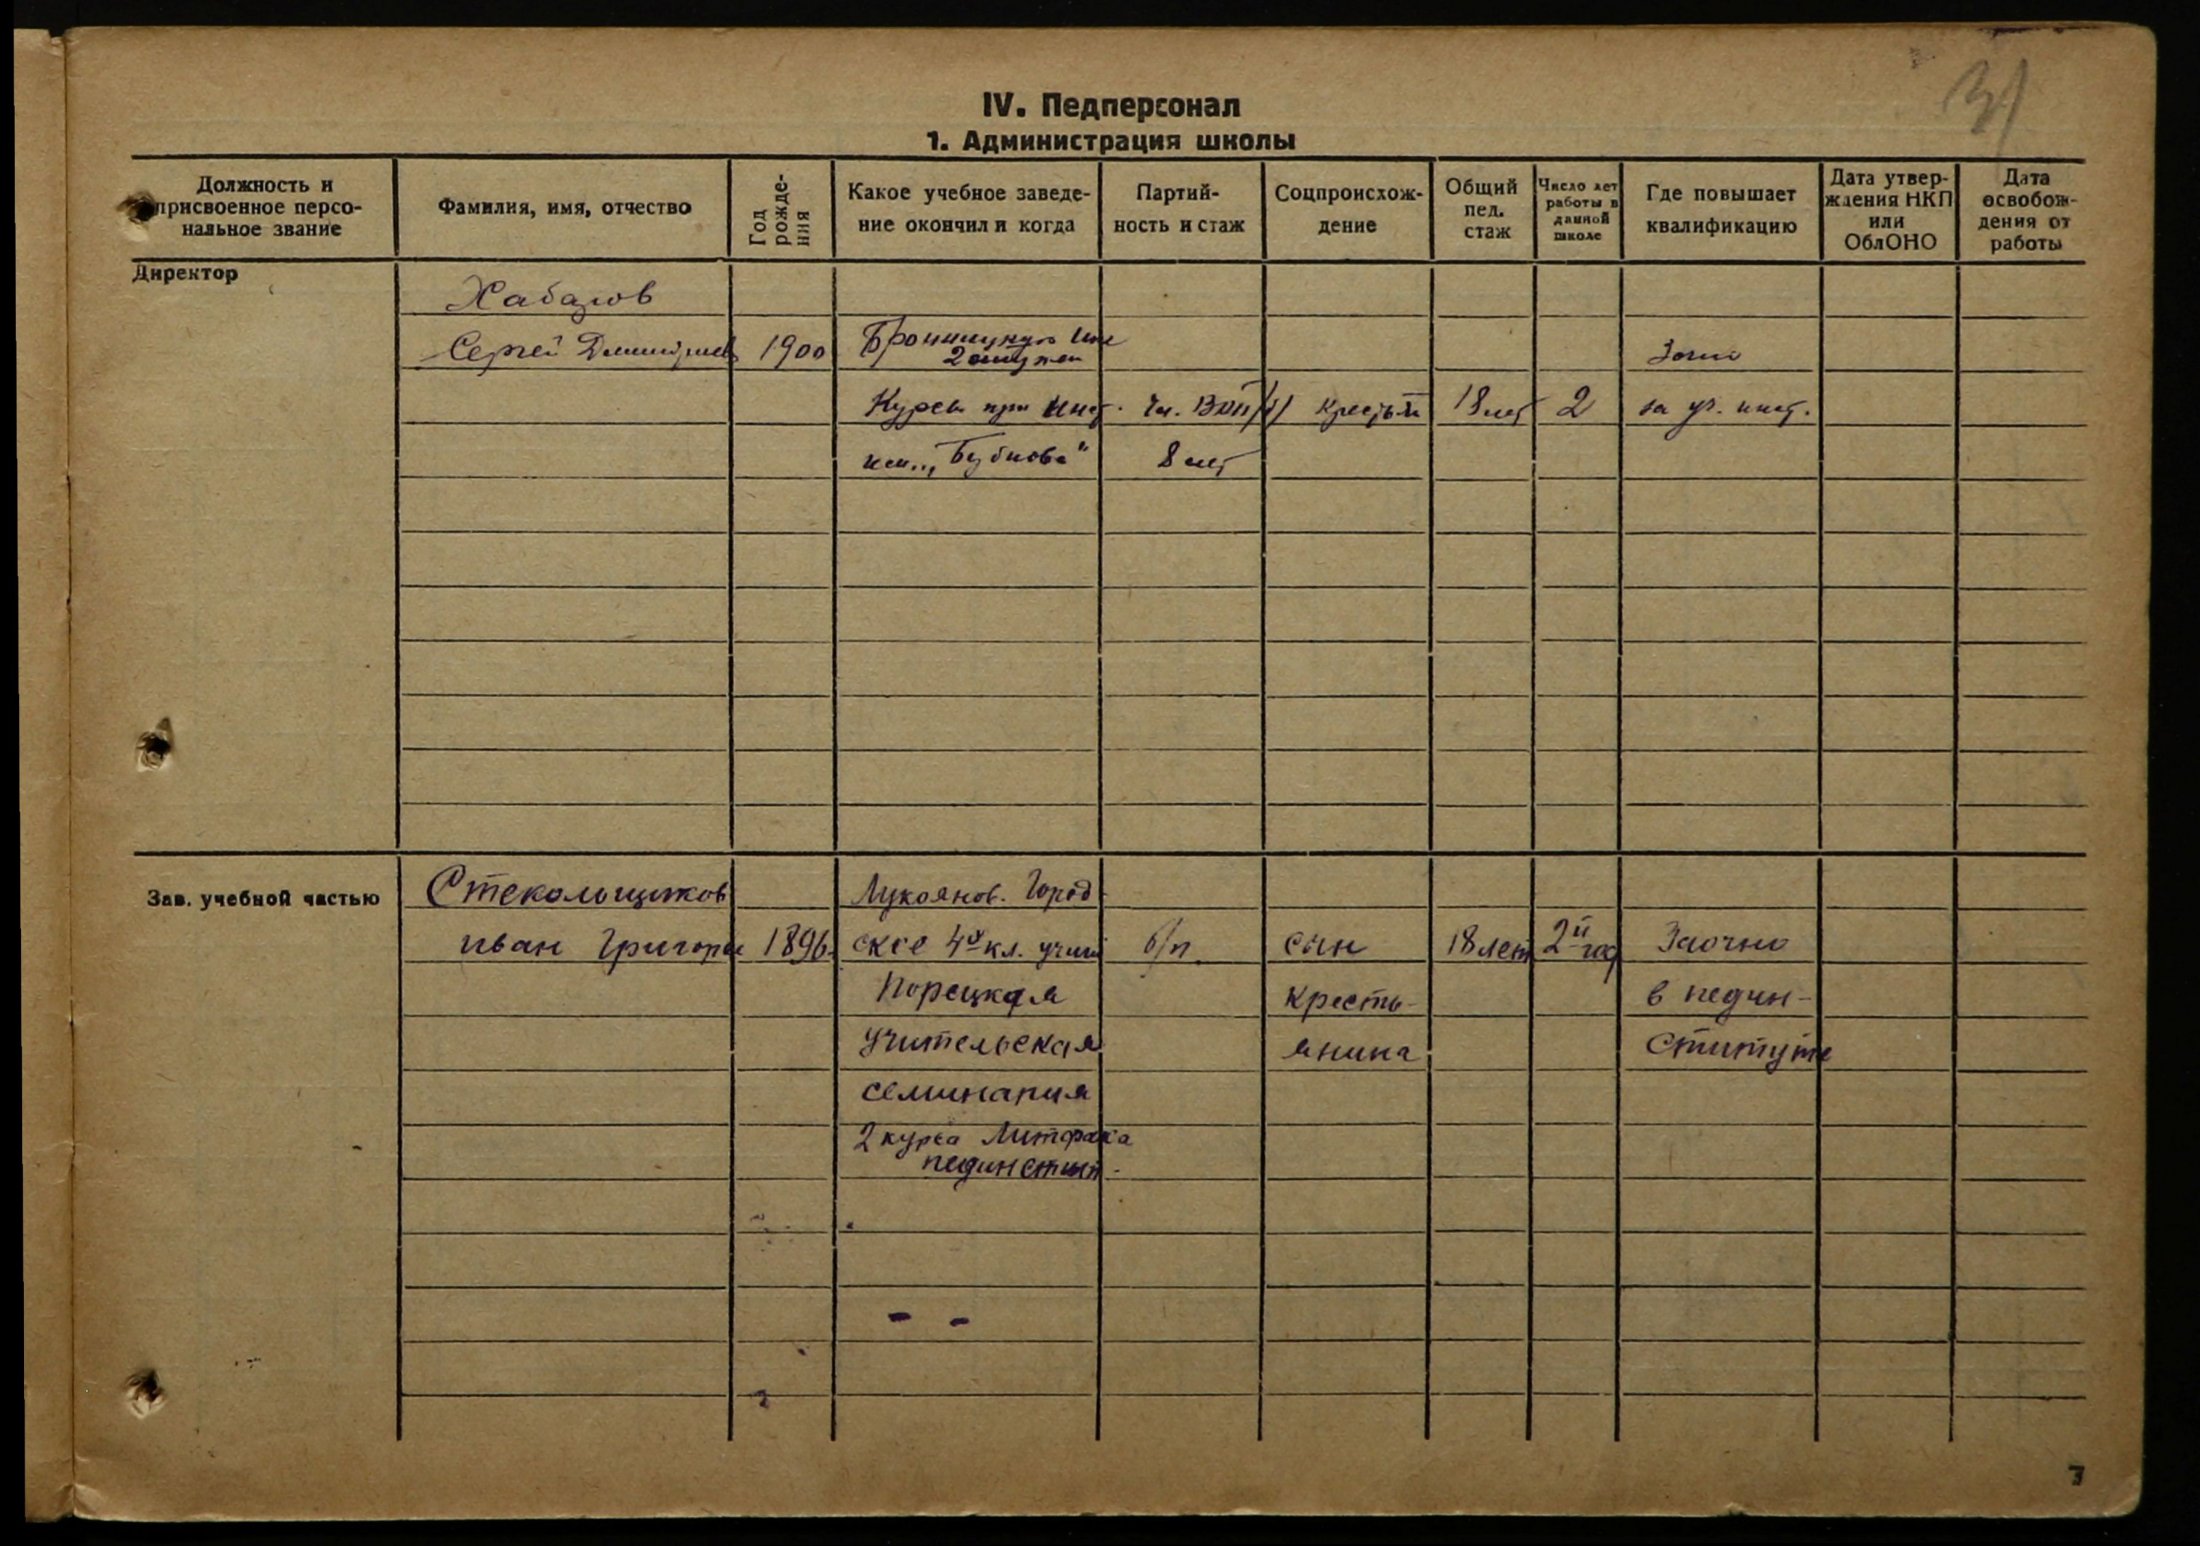 31
IV. Педперсонал
1. Администрация школы
Должность и присвоенное персональное звание
Фамилия, имя, отчество
Год рождения
Какое учебное заведение окончил и когда
Партийность и стаж
Соцпроисхождение
Общий пед. стаж
Число лет работы в данной школе
Где повышает квалификацию
Дата утверждения НКП или ОблОНО
Дата освобождения от работы
Директор
Хабаров
Сергей 1900 2 ступен
Курсы при Инст. Чл. ВКП/б/ 18 лет 2 за уч. инст.
им. „Бубнова" 8 лет
Зав. учебной частью
Стекольщиков Лукоянов. Город
Иван Григорье 1896. ское 4х кл. учили б/п. сын 18 лет 2й год Заочно
Порецкая кресть- в педин-
учительская янина ституте
семинария
2 курса Литфака
пединстит.
7